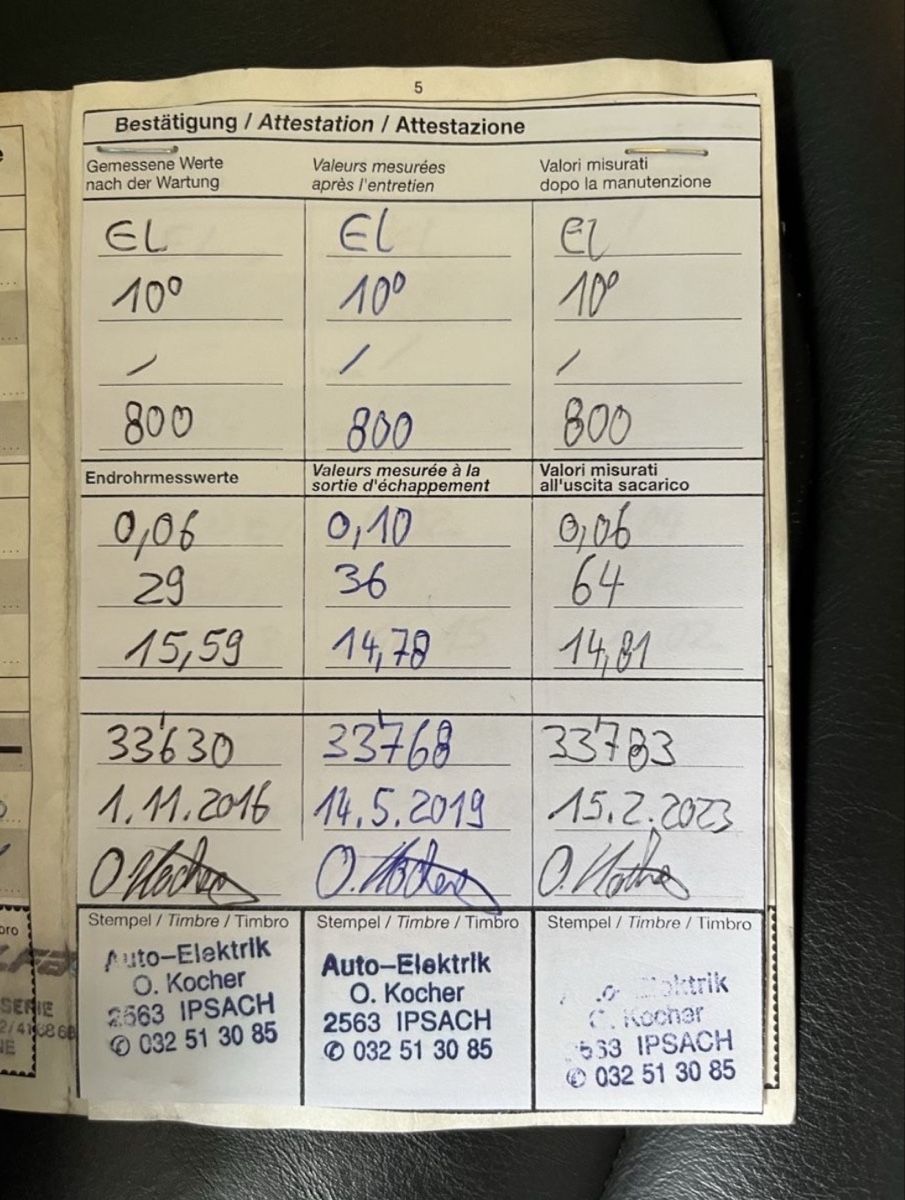 5
Bestätigung / Attestation / Attestazione
Gemessene Werte nach der Wartung
Valeurs mesurées après l'entretien
Valori misurati dopo la manutenzione
EL EL EL
10° 10° 10°
/ / /
800 800 800
Endrohrmesswerte
Valeurs mesurée à la sortie d'échappement
Valori misurati all'uscita sacarico
0,06 0,10 0,06
29 36 64
15,59 14,78 14,81
33'630 33'768 33'783
1.11.2016 14.5.2019 15.2.2023
O. Kocher O. Kocher O. Kocher
Stempel / Timbre / Timbro Stempel / Timbre / Timbro Stempel / Timbre / Timbro
Auto-Elektrik
O. Kocher
2563 IPSACH
✆ 032 51 30 85
Auto-Elektrik
O. Kocher
2563 IPSACH
✆ 032 51 30 85
Kocher
IPSACH
✆ 032 51 30 85